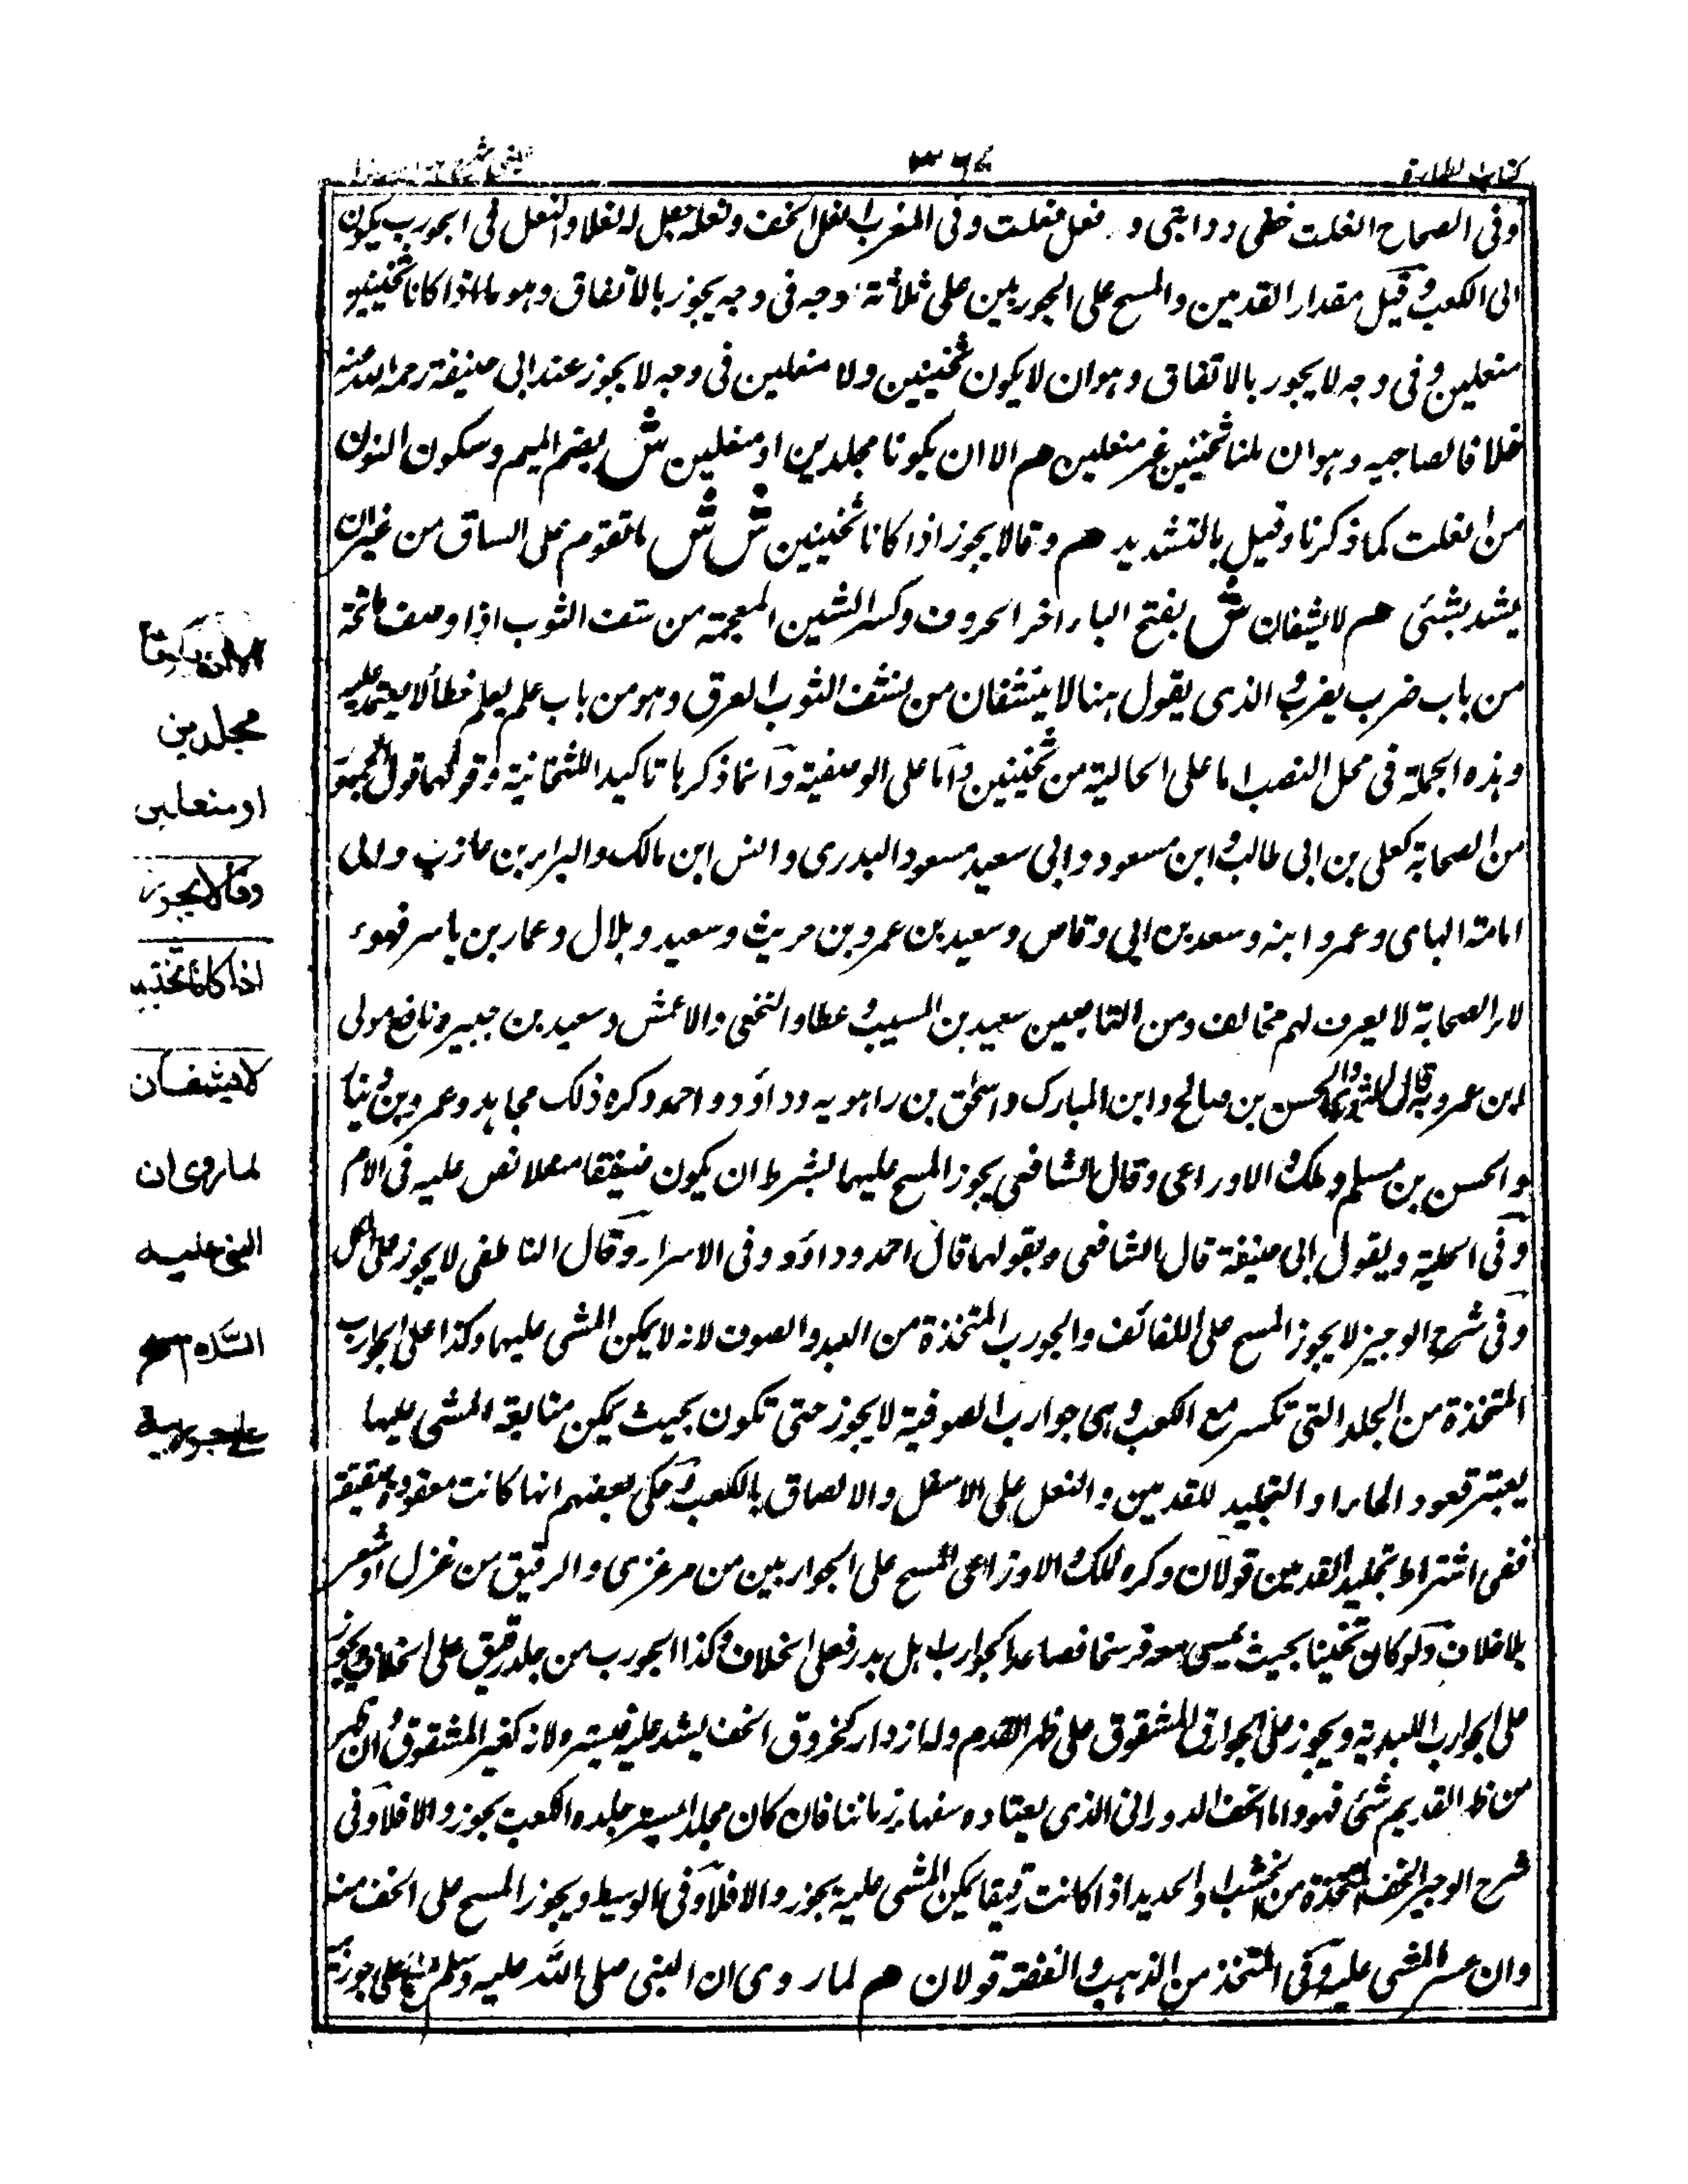 كتاب الطهارة
وفى الصحاح انعلت خفى ودابتى و نعل منعلت وفى المغرب انعل الخف ونعله جعل له نعلا والنعل فى الجورب يكون
الى الكعب وقيل مقدار القدمين والمسح على الجوربين على ثلاثة اوجه فى وجه يجوز بالاتفاق وهو ما اذا كانا ثخينين
منعلين وفى وجه لا يجوز بالاتفاق وهو ان لا يكون ثخينين ولا منعلين فى وجه لا يجوز عند ابى حنيفة رحمه الله
خلافا لصاحبيه وهو ان ثخينين غير منعلين هم الا ان يكونا مجلدين او منعلين ش بضم الميم وسكون النون
من انعلت كما ذكرنا وقيل بالتشديد هم وقالا يجوز اذا كانا ثخينين ش ش ما تقوم على الساق من غير ان
يشد بشئ هم لا يشفان ش بفتح الياء اخر الحروف وكسر الشين المعجمة من شف الثوب اذا وصف ما تحته
من باب ضرب يضرب والذى يقول هنا لا ينشفان من نشف الثوب العرق وهو من باب علم يعلم خطأ لا يعتمد عليه
وهذه الجملة فى محل النصب اما على الحالية من ثخينين واما على الوصفية وانما ذكرها تاكيدا للثخانية وقولهما قول
من الصحابة كعلى بن ابى طالب وابن مسعود وابى سعيد مسعود البدرى وانس ابن مالك والبراء بن عازب وابى
امامة الباهى وعمر وابنه وسعد بن ابى وقاص وسعيد بن عمرو بن حريث وسعيد وبلال وعمار بن ياسر فهو
لاء الصحابة لا يعرف لهم مخالف ومن التابعين سعيد بن المسيب وعطا والنخعى والاعمش وسعيد بن جبير ونافع مولى
ابن عمر وبه قال الثورى والحسن بن صالح وابن المبارك واسحق بن راهويه وداؤد واحمد وكره ذلك مجاهد وعمرو بن
والحسن بن مسلم وملك والاوراعى وقال الشافعى يجوز المسح عليهما بشرط ان يكون ضيقا منعلا نص عليه فى الام
وفى الحلية وبقول ابى حنيفة قال الشافعى وبقولهما قال احمد وداؤد وفى الاسرار وقال الناطفى لا يجوز على
وفى شرح الوجيز لا يجوز المسح على اللفائف والجورب المتخذة من اللبد والصوف لانه لا يمكن المشى عليهما وكذا على الجوارب
المتخذة من الجلد التى تكسر مع الكعب وهى جوارب الصوفية لا يجوز حتى تكون بحيث يمكن متابعة المشى عليها
يعتبر قعود الماء او التجليد للقدمين والنعل على الاسفل والالصاق بالكعب وحكى بعضهم انها كانت معقودة
ففى اشتراط تجليد القدمين قولان وكره ملك والاوزاعى المسح على الجوربين من مرعزى والرقيق من غزل او شعر
بلا خلاف ولو كان ثخينا بحيث يمسى معه فرسخا فصاعدا كجوارب اهل بدر فعلى الخلاف وكذا الجورب من جلد رقيق على الخلاف ويجوز
على الجوارب اللبدية ويجوز على المشقوق على ظهر القدم وله ازرار كخروق الخف يشد عليه فيستره لانه كغير المشقوق وان ظهر
من ظهر القديم شئ فهو واما الخف الدورانى الذى يعتاده سفهاء زماننا فان كان مجلدا يستر جلده الكعب يجوز والا فلا وفى
شرح الوجيز الخف المتخذة من الخشب او الحديد اذا كانت رقيقا يمكن المشى عليه يجوز والا فلا وفى الوسيط ويجوز المسح على الخف منه
وان عسر المشى عليه وفى المتخذ من الذهب والفضة قولان هم لما روى ان النبى صلى الله عليه وسلم
الا ان يكونا
مجلدين
او منعلين
وقالا يجوز
اذا كانا ثخينين
لا يشفان
لما روى ان
النبى عليه
السلام مسح
على جوربيه